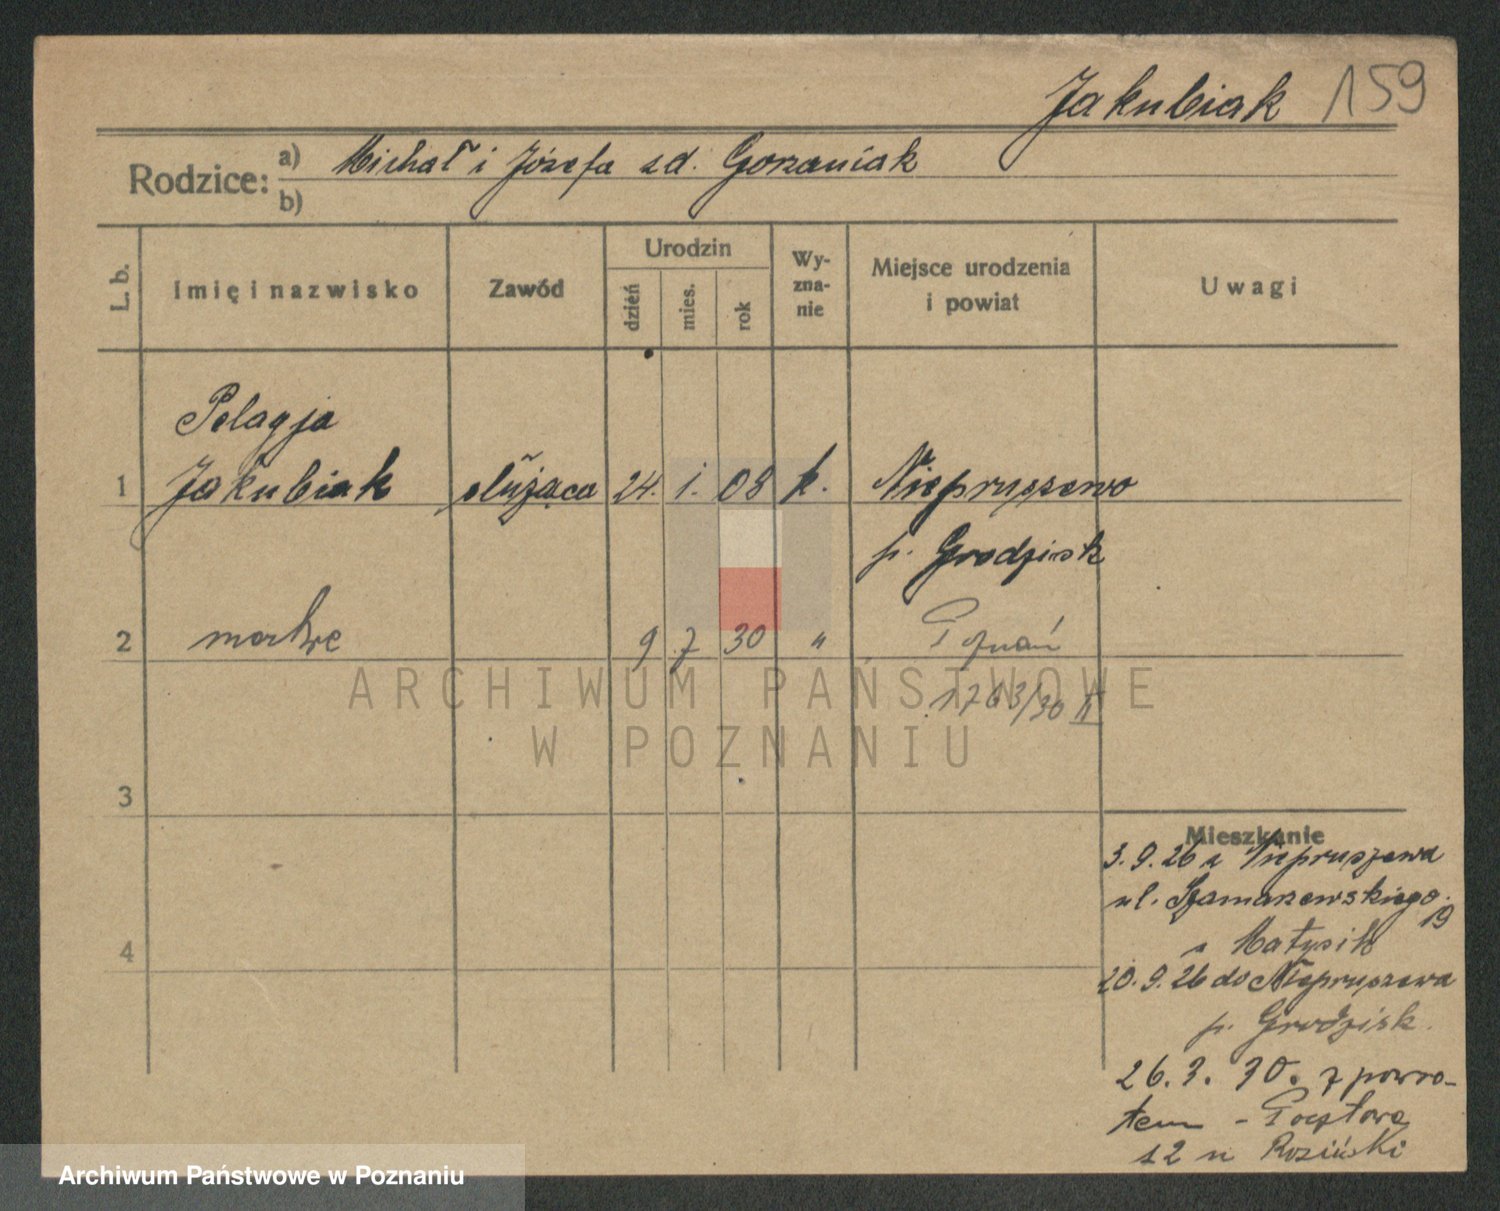 Jakubiak 159
Rodzice: a) Michał i Józefa zd. Gorzaniak
b)
L. b.
Imię i nazwisko
Zawód
Urodzin
dzień
mies.
rok
Wy-
zna-
nie
Miejsce urodzenia
i powiat
Uwagi
Pelagja
1 Jakubiak służąca 24. 1. 08 k. Niepruszewo
p. Grodzisk
2 martwe 9 7 30 " Poznań
1763/30 II
ARCHIWUM PAŃSTWOWE
W POZNANIU
3
4
Mieszkanie
3.9.26 z Niepruszewa
ul. Szamarzewskiego.
19
u Matysik
20.9.26 do Niepruszewa
p. Grodzisk.
26.3.30. z powro-
tem - Pocztowa
12 u Roziński
Archiwum Państwowe w Poznaniu